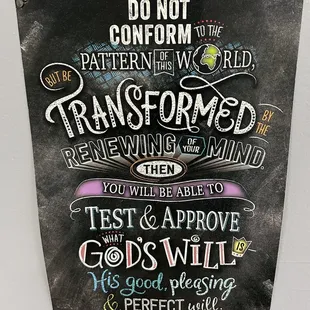 DO NOT
CONFORM TO THE
PATTERN OF THIS WORLD,
BUT BE
TRANSFORMED BY THE
RENEWING OF YOUR MIND.
THEN
YOU WILL BE ABLE TO
TEST & APPROVE
WHAT
GOD'S WILL IS
His good, pleasing
& PERFECT will.